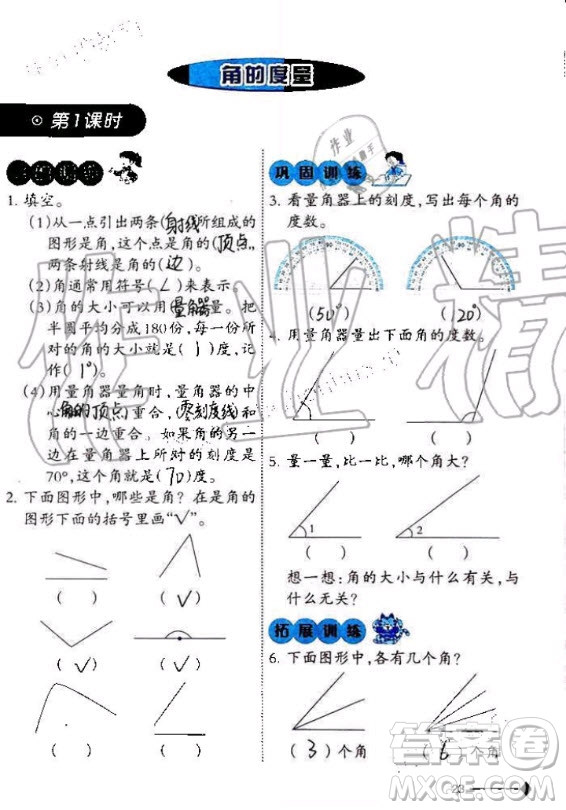 角的度量
第1课时
1. 填空。
(1)从一点引出两条(射线)所组成的
图形是角,这个点是角的(顶点),
两条射线是角的(边)。
(2)角通常用符号(∠)来表示。
(3)角的大小可以用(量角器)量。把
半圆平均分成180份,每一份所
对的角的大小就是(1)度,记
作(1°)。
(4)用量角器量角时,量角器的中
心角的顶点重合,(零刻度线)和
角的一边重合。如果角的另一
边在量角器上所对的刻度是
70°,这个角就是(70)度。
2. 下面图形中,哪些是角?在是角的
图形下面的括号里画“√”。
( ) (√)
(√) (√)
( ) ( )
巩固训练
3. 看量角器上的刻度,写出每个角的
度数。
(50°) (120°)
4. 用量角器量出下面角的度数。
( ) ( )
5. 量一量,比一比,哪个角大?
1 2
( ) ( )
想一想:角的大小与什么有关,与
什么无关?
拓展训练
6. 下面图形中,各有几个角?
(3)个角 (6)个角
23
答案圈
MXQE.COM
作业精